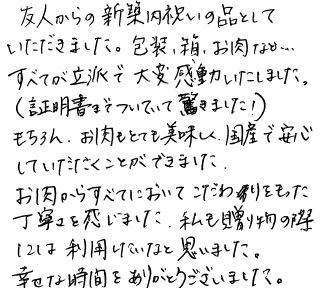 友人からの新築内祝いの品として
いただきました。包装、箱、お肉など…
すべてが立派で大変感動いたしました。
(証明書までついていて驚きました!)
もちろん、お肉もとても美味しく、国産で安心
していただくことができました。
お肉からすべてにおいてこだわりをもった
丁寧さを感じました。私も贈り物の際
には利用したいなと思いました。
幸せな時間をありがとうございました。